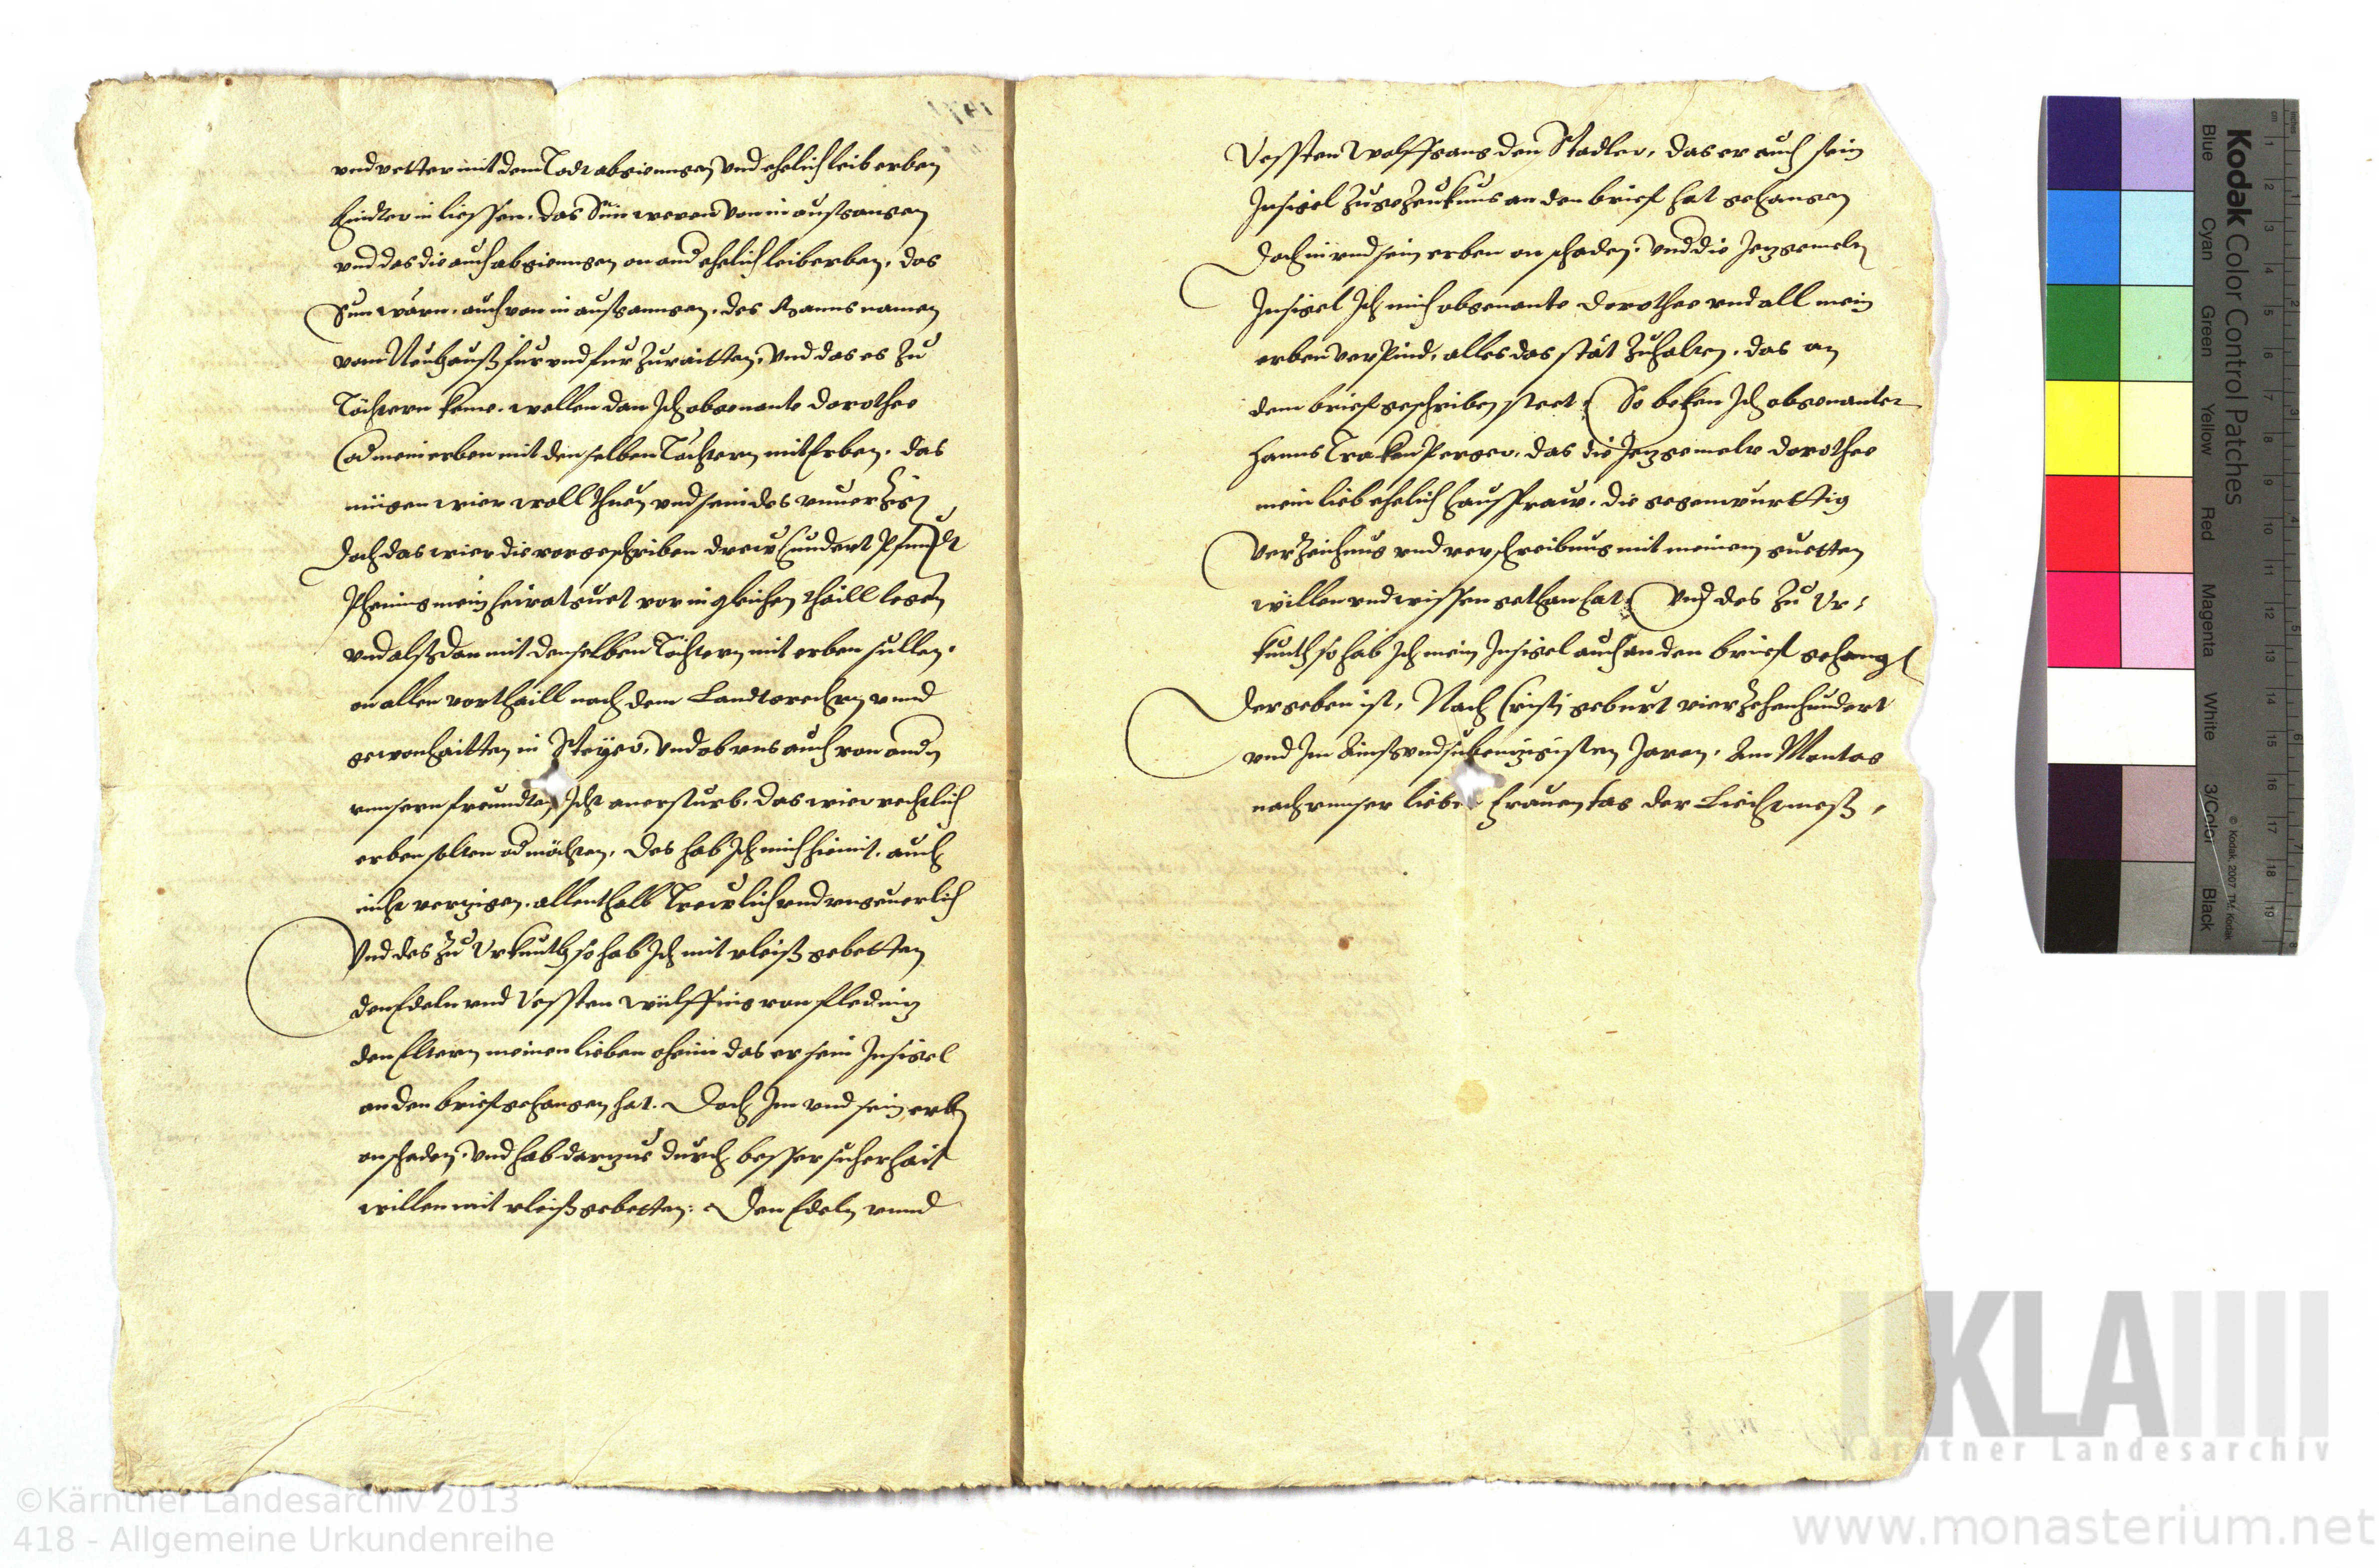 vnd vetter mit dem Todt abgienngen vnd ehelich leib erben
hindter in liessen. das Sün weren von in außgangen
vnd das die auch abgienngen on and ehelich leib erben, das
Sun wärn. auch von in außganngen. des Manns namen
vom Neuhauß fur vnd fur zuraitten, vnd das es zu
Töchtern keme. wellen dan Ich obgenante dorothee
od mein erben mit denselben Töchtern mit Erben. das
mügen wier woll thuen vnd sein des vnuerzigen
doch das wier die vorgeschriben drew hundert Pfundt
Phening mein heiratguet vor in gleichen thaill legen
vnd alßdan mit denselben Töchtern mit erben sullen.
on allen vorthaill nach dem Landtsrechten vnnd
gewonhaitten in Steyer, vnd ob vns auch von andn
vnnsern freundten Icht anersturb. das wier rechtlich
erben solten od möchten, des hab Ich mich hiemit. auch
nicht verzigen. allenthalb Trewlich vnd vngeuerlich
Vnd des zu Vrkunth so hab Ich mit vleiß gebetten
den Edeln vnd Vessten wülffing von fledniz
den Eltern meinen lieben oheim das er sein Insigel
an den brief gehangen hat. Doch Im vnd sein erben
on schaden, vnd hab darzue durch besser sicherhait
willen mit vleiß gebetten: Den Edeln vnnd
Vessten Wolffgang den Stadler, das er auch sein
Insigel zu gezeuknus an den brief hat gehangen
doch im vnd sein erben on schaden. vnd die Iezgemeln
Insigel Ich mich obgenante dorothee vnd all mein
erben verPind, alles das stät zuhalten. das an
dem brief geschriben steet. So beken Ich obgenanter
Hanns TrakenPerger, das die Iezgemelt dorothee
mein lieb ehelich haussfraw. die gegenwurttig
Verzeichnus vnd verschreibung mit meinem guetten
willen vnd wissen gethan hat. Vnd des zu Vr:
kunth so hab Ich mein Insigel auch an den brief gehangen
Der geben ist, Nach Cristi geburt vierzehenhundert
vnd Im Ainß vnd sibenzigisten Jaren. Am Montag
nach vnnser lieben Frauen tag der Liechtmeß,
©Kärntner Landesarchiv 2013
418 - Allgemeine Urkundenreihe
KLA
Kärntner Landesarchiv
www.monasterium.net
Kodak Color Control Patches
Blue Cyan Green Yellow Red Magenta White 3/Color Black
© Kodak, 2007 TM: Kodak